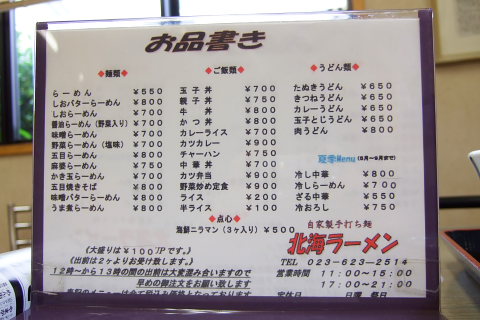 お品書き
◆麺類◆
らーめん ￥550
しおバターらーめん ￥800
しおらーめん ￥700
醤油らーめん(野菜入り) ￥700
味噌らーめん ￥700
野菜らーめん(塩味) ￥700
五目らーめん ￥800
麻婆らーめん ￥750
かき玉らーめん ￥700
五目焼きそば ￥800
味噌バターらーめん ￥800
うま煮らーめん ￥800
◆ご飯類◆
玉子丼 ￥700
親子丼 ￥750
牛丼 ￥800
かつ丼 ￥800
カレーライス ￥700
カツカレー ￥900
チャーハン ￥750
中華丼 ￥700
カツ弁当 ￥900
野菜炒め定食 ￥900
ライス ￥200
半ライス ￥100
◆うどん類◆
たぬきうどん ￥650
きつねうどん ￥650
カレーうどん ￥650
玉子とじうどん ￥650
肉うどん ￥800
夏季Menu (5月～9月まで)
冷し中華 ￥800
冷しらーめん ￥700
ざる中華 ￥550
冷おろし ￥750
◆点心◆
海鮮ニラマン(3ヶ入り) ￥500
(大盛りは￥100UPです。)
(出前は2ヶよりお受け致します。)
12時～から13時の間の出前は大変混み合いますので
早めの御注文をお願い致します
自家製手打ち麺
北海ラーメン
TEL 023-623-2514
営業時間 11:00～15:00
17:00～21:00
定休日 日曜 祭日